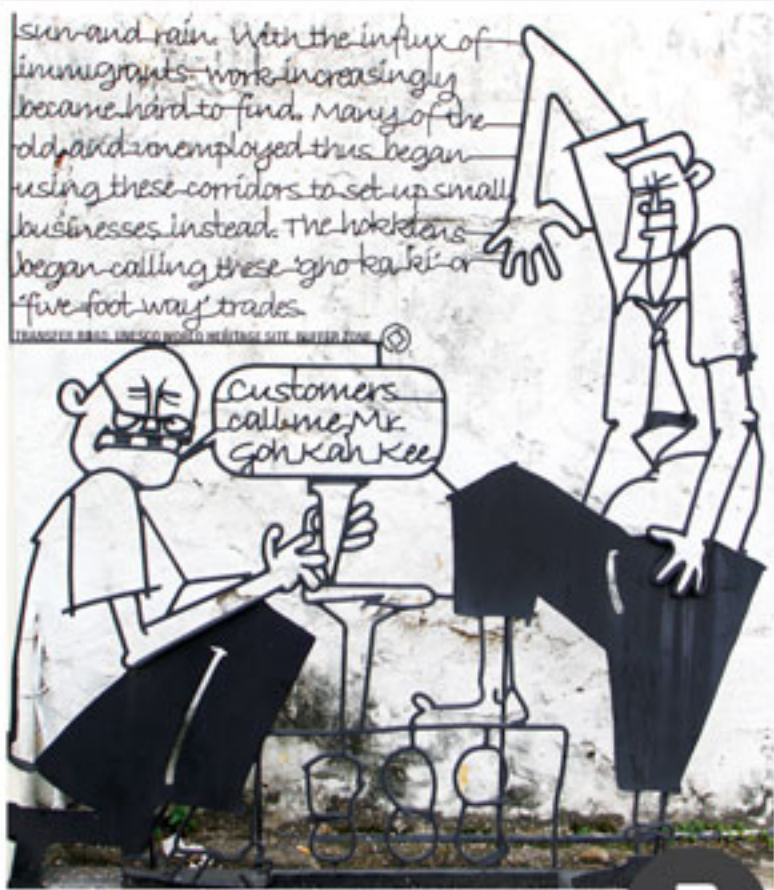 sun and rain. With the influx of
immigrants work increasingly
became hard to find. Many of the
old and unemployed thus began
using these corridors to set up small
businesses instead. The hokkiens
began calling these 'gho ka ki' or
'five foot way' trades.
TRANSFER ROAD. UNESCO WORLD HERITAGE SITE. BUFFER ZONE
Customers
call me Mr.
Goh Kah Kee